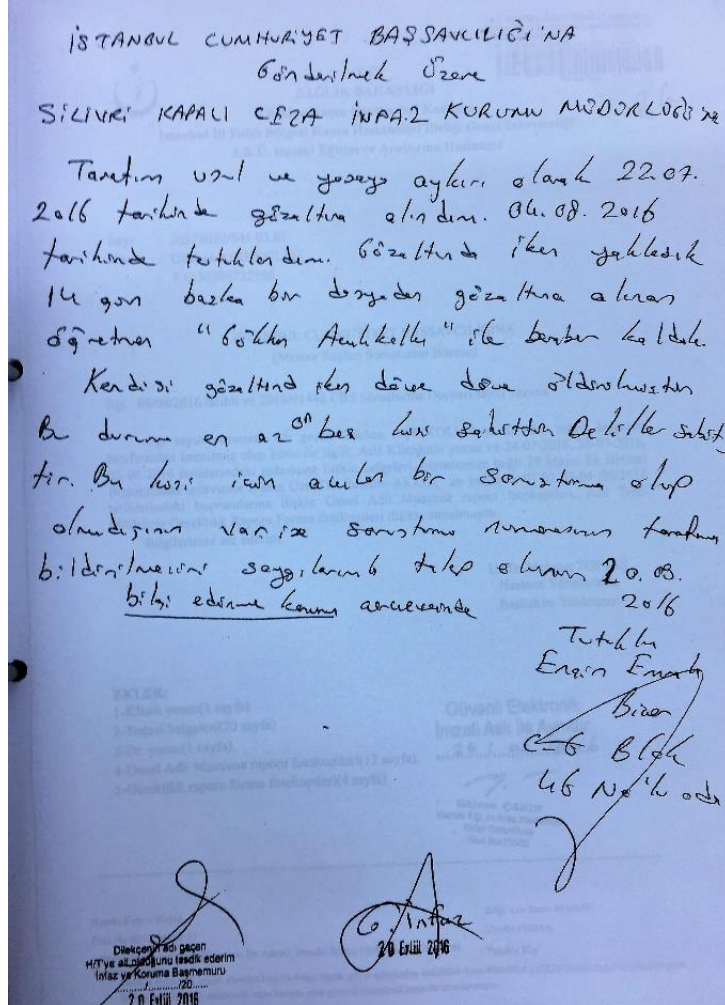 İSTANBUL CUMHURİYET BAŞSAVCILIĞI'NA
Gönderilmek Üzere
SİLİVRİ KAPALI CEZA İNFAZ KURUMU MÜDÜRLÜĞÜ'NE
Tarafım usul ve yasaya aykırı olarak 22.07.
2016 tarihinde gözaltına alındım. 04.08.2016
tarihinde tutuklandım. Gözaltında iken yaklaşık
14 gün başka bir dosyadan gözaltına alınan
öğretmen "Gökhan Açıkkollu" ile beraber kaldık.
Kendisi gözaltında iken döve döve öldürülmüştür
Bu duruma en az on beş kişi şahittir. Deliller sabit
tir. Bu kişi için açılan bir soruşturma olup
olmadığının varise soruşturma numarasının tarafıma
bildirilmesini saygılarımla talep olunur 20.09.
bilgi edinme kanunu çerçevesinde 2016
Tutuklu
Engin Emrah
Biçer
C-6 Blok
46 No'lu oda
EKLER:
Güvenli Elektronik
İmzalı Aslı ile Aynıdır
G. İnfaz
20 Eylül 2016
Dilekçenin adı geçen
H/T'ye ait olduğunu tasdik ederim
İnfaz ve Koruma Başmemuru
....../....../20......
20 Eylül 2016